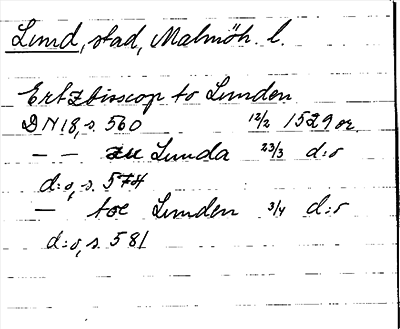 Lund, stad, Malmöh. l.
Ertzbisscop to Lunden
DN 18, s. 560 12/2 1529 or.
— — zu Lunda 23/3 d:o
d:o, s. 574
— toe Lunden 3/4 d:o
d:o, s. 581